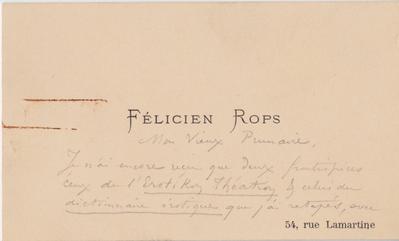 FÉLICIEN ROPS
Mon Vieux
Je n'ai encore reçu que deux frontispices
ceux de l'Erotikon Théatron & celui du
dictionnaire érotique que j'ai retapés, avec
54, rue Lamartine